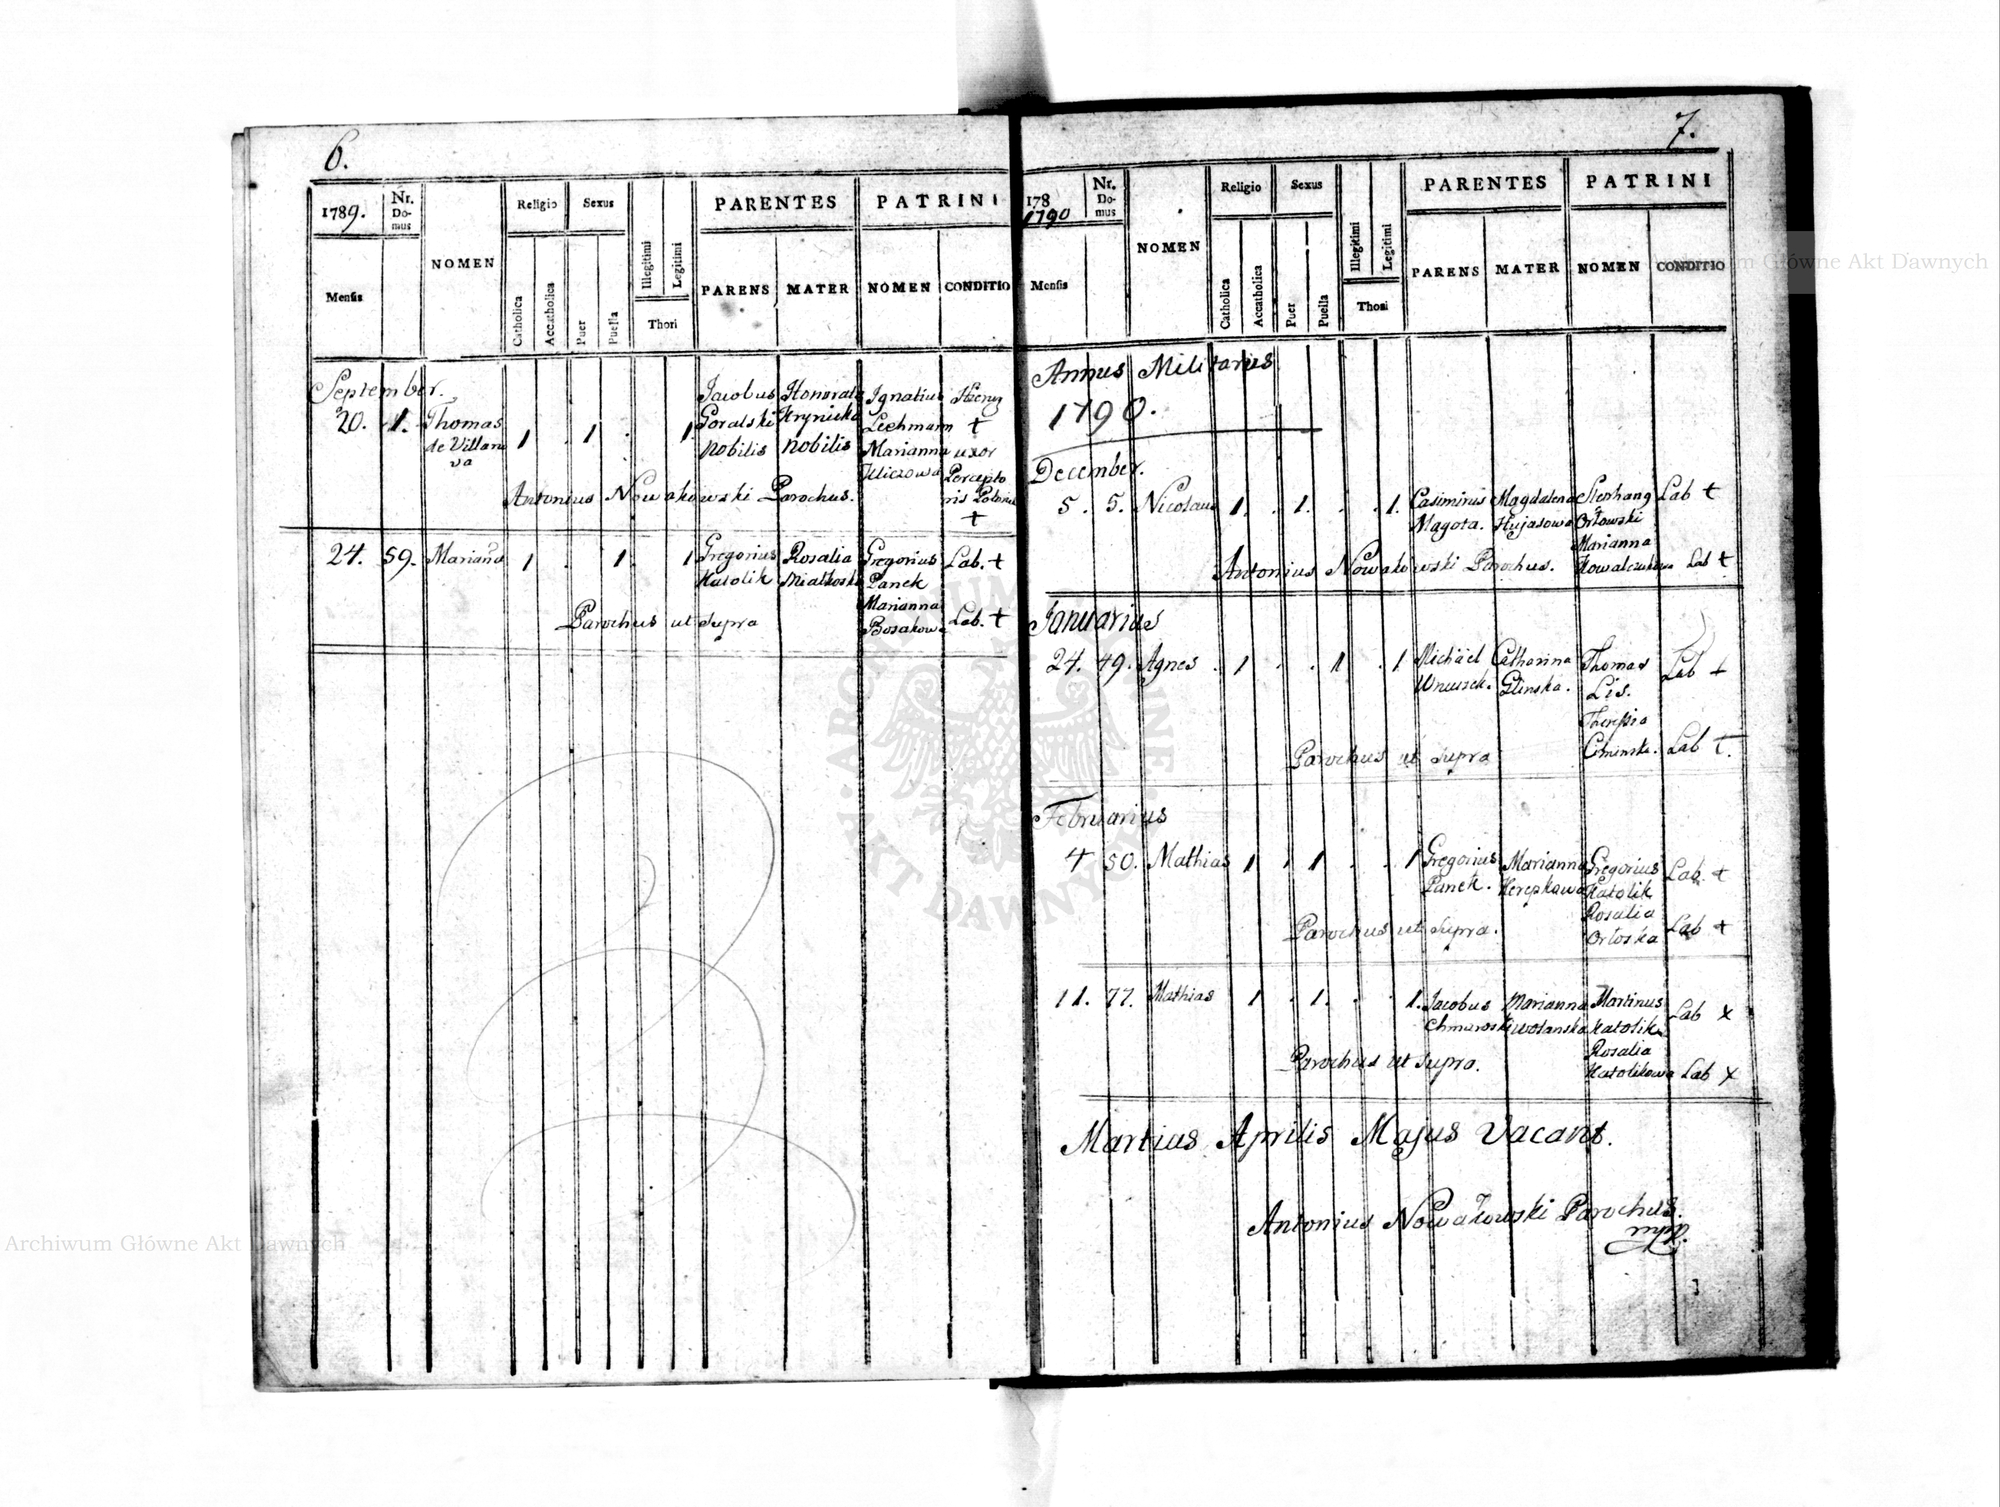 6.
1789.
Nr. Do-mus
NOMEN
Religio
Sexus
PARENTES
PATRINI
Mensis
Catholica
Accatholica
Puer
Puella
Illegitimi
Legitimi
Thori
PARENS
MATER
NOMEN
CONDITIO
September.
20. 1. Thomas 1 . 1 . 1 Jacobus Honorata Ignatius
de Villano Goralski Krynicka Lechmann †
va nobilis nobilis Marianna uxor
Kliczowa Percepto
Antonius Nowakowski Parochus. ris
†
24. 59. Marianna 1 . . 1 . 1 Gregorius Rosalia Gregorius Lab. †
Katolik Miałkoska Panek
Marianna
Parochus ut supra Bosakowa Lab. †
7.
178
1790
Nr. Do-mus
NOMEN
Religio
Sexus
PARENTES
PATRINI
Mensis
Catholica
Accatholica
Puer
Puella
Illegitimi
Legitimi
Thori
PARENS
MATER
NOMEN
CONDITIO
Annus Militaris
1790.
December.
5. 5. Nicolaus 1. . 1. . . 1. Casimirus Magdalena Lab †
Magota. Kujasowa Orłowski
Marianna
Antonius Nowakowski Parochus. Kowalczukowa Lab †
Januarius
24. 49. Agnes . 1 . . 1 . 1 Michäel Catharina Thomas Lab †
Wnuszek. Glinska. Lis.
Theresia
Parochus ut supra Lab †.
Februarius
4 50. Mathias 1 . 1 . . 1 Gregorius Marianna Gregorius Lab. †
Panek. Katolik
Rosalia
Parochus ut supra. Orłoska Lab †
11. 77. Mathias 1 . 1. . . 1. Jacobus Marianna Martinus Lab x
Katolik
Rosalia
Parochus ut supra. Katolikowa Lab x
Martius Aprilis Majus Vacant.
Antonius Nowakowski Parochus.
mpp.
Archiwum Główne Akt Dawnych
Archiwum Główne Akt Dawnych
ARCHIWUM GŁÓWNE AKT DAWNYCH